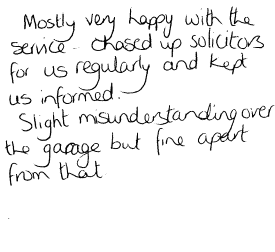 Mostly very happy with the
service. Chased up solicitors
for us regularly and kept
us informed.
Slight misunderstanding over
the garage but fine apart
from that